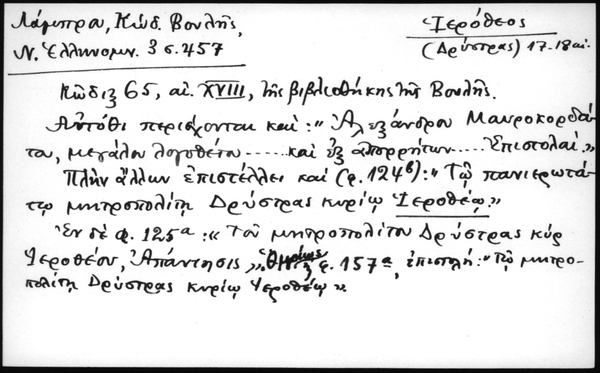 Λάμπρου, Κώδ. Βουλῆς,
Ν. Ἑλληνομν. 3 σ. 457
Ἱερόθεος
(Δρύστρας) 17-18 αἰ.
Κῶδιξ 65, αἰ. XVIII, τῆς βιβλιοθήκης τῆς Βουλῆς.
Αὐτόθι περιέχονται καὶ: "Ἀλεξάνδρου Μαυροκορδά-
του, μεγάλου λογοθέτου ...... καὶ ἐξ ἀπορρήτων ..... Ἐπιστολαί."
Πλὴν ἄλλων ἐπιστέλλει καὶ (φ. 124β): "Τῷ πανιερωτά-
τῳ μητροπολίτῃ Δρύστρας κυρίῳ Ἱεροθέῳ"
Ἐν δὲ φ. 125α: "Τοῦ μητροπολίτου Δρύστρας κὺρ
Ἱεροθέου, Ἀπάντησις", φ. 157α, ἐπιστολή: "Τῷ μητρο-
πολίτῃ Δρύστρας κυρίῳ Ἱεροθέῳ"